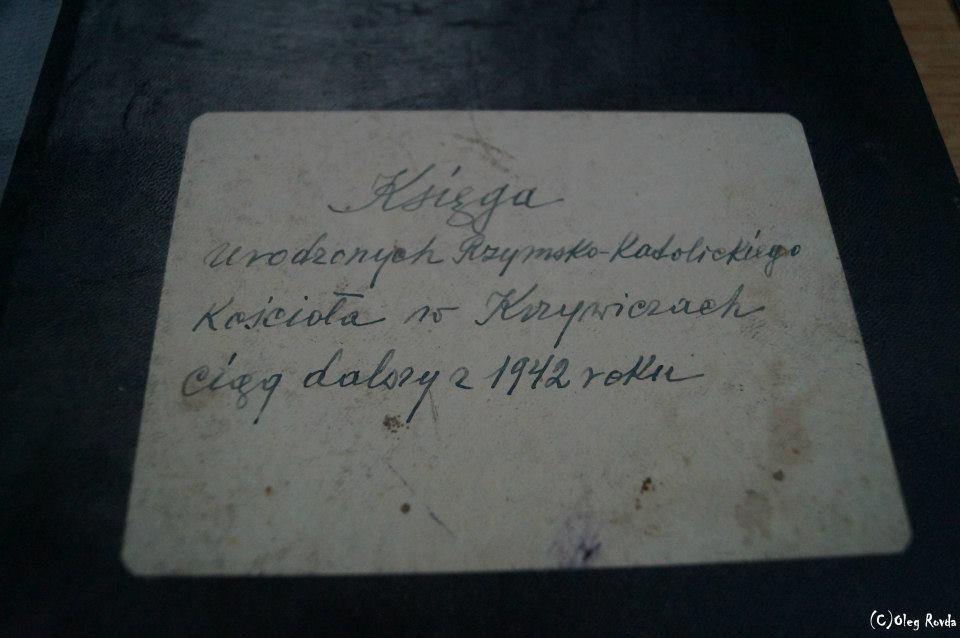 Księga
urodzonych Rzymsko-Katolickiego
Kościoła w Krzywiczach
ciąg dalszy z 1942 roku
(C)Oleg Rovda